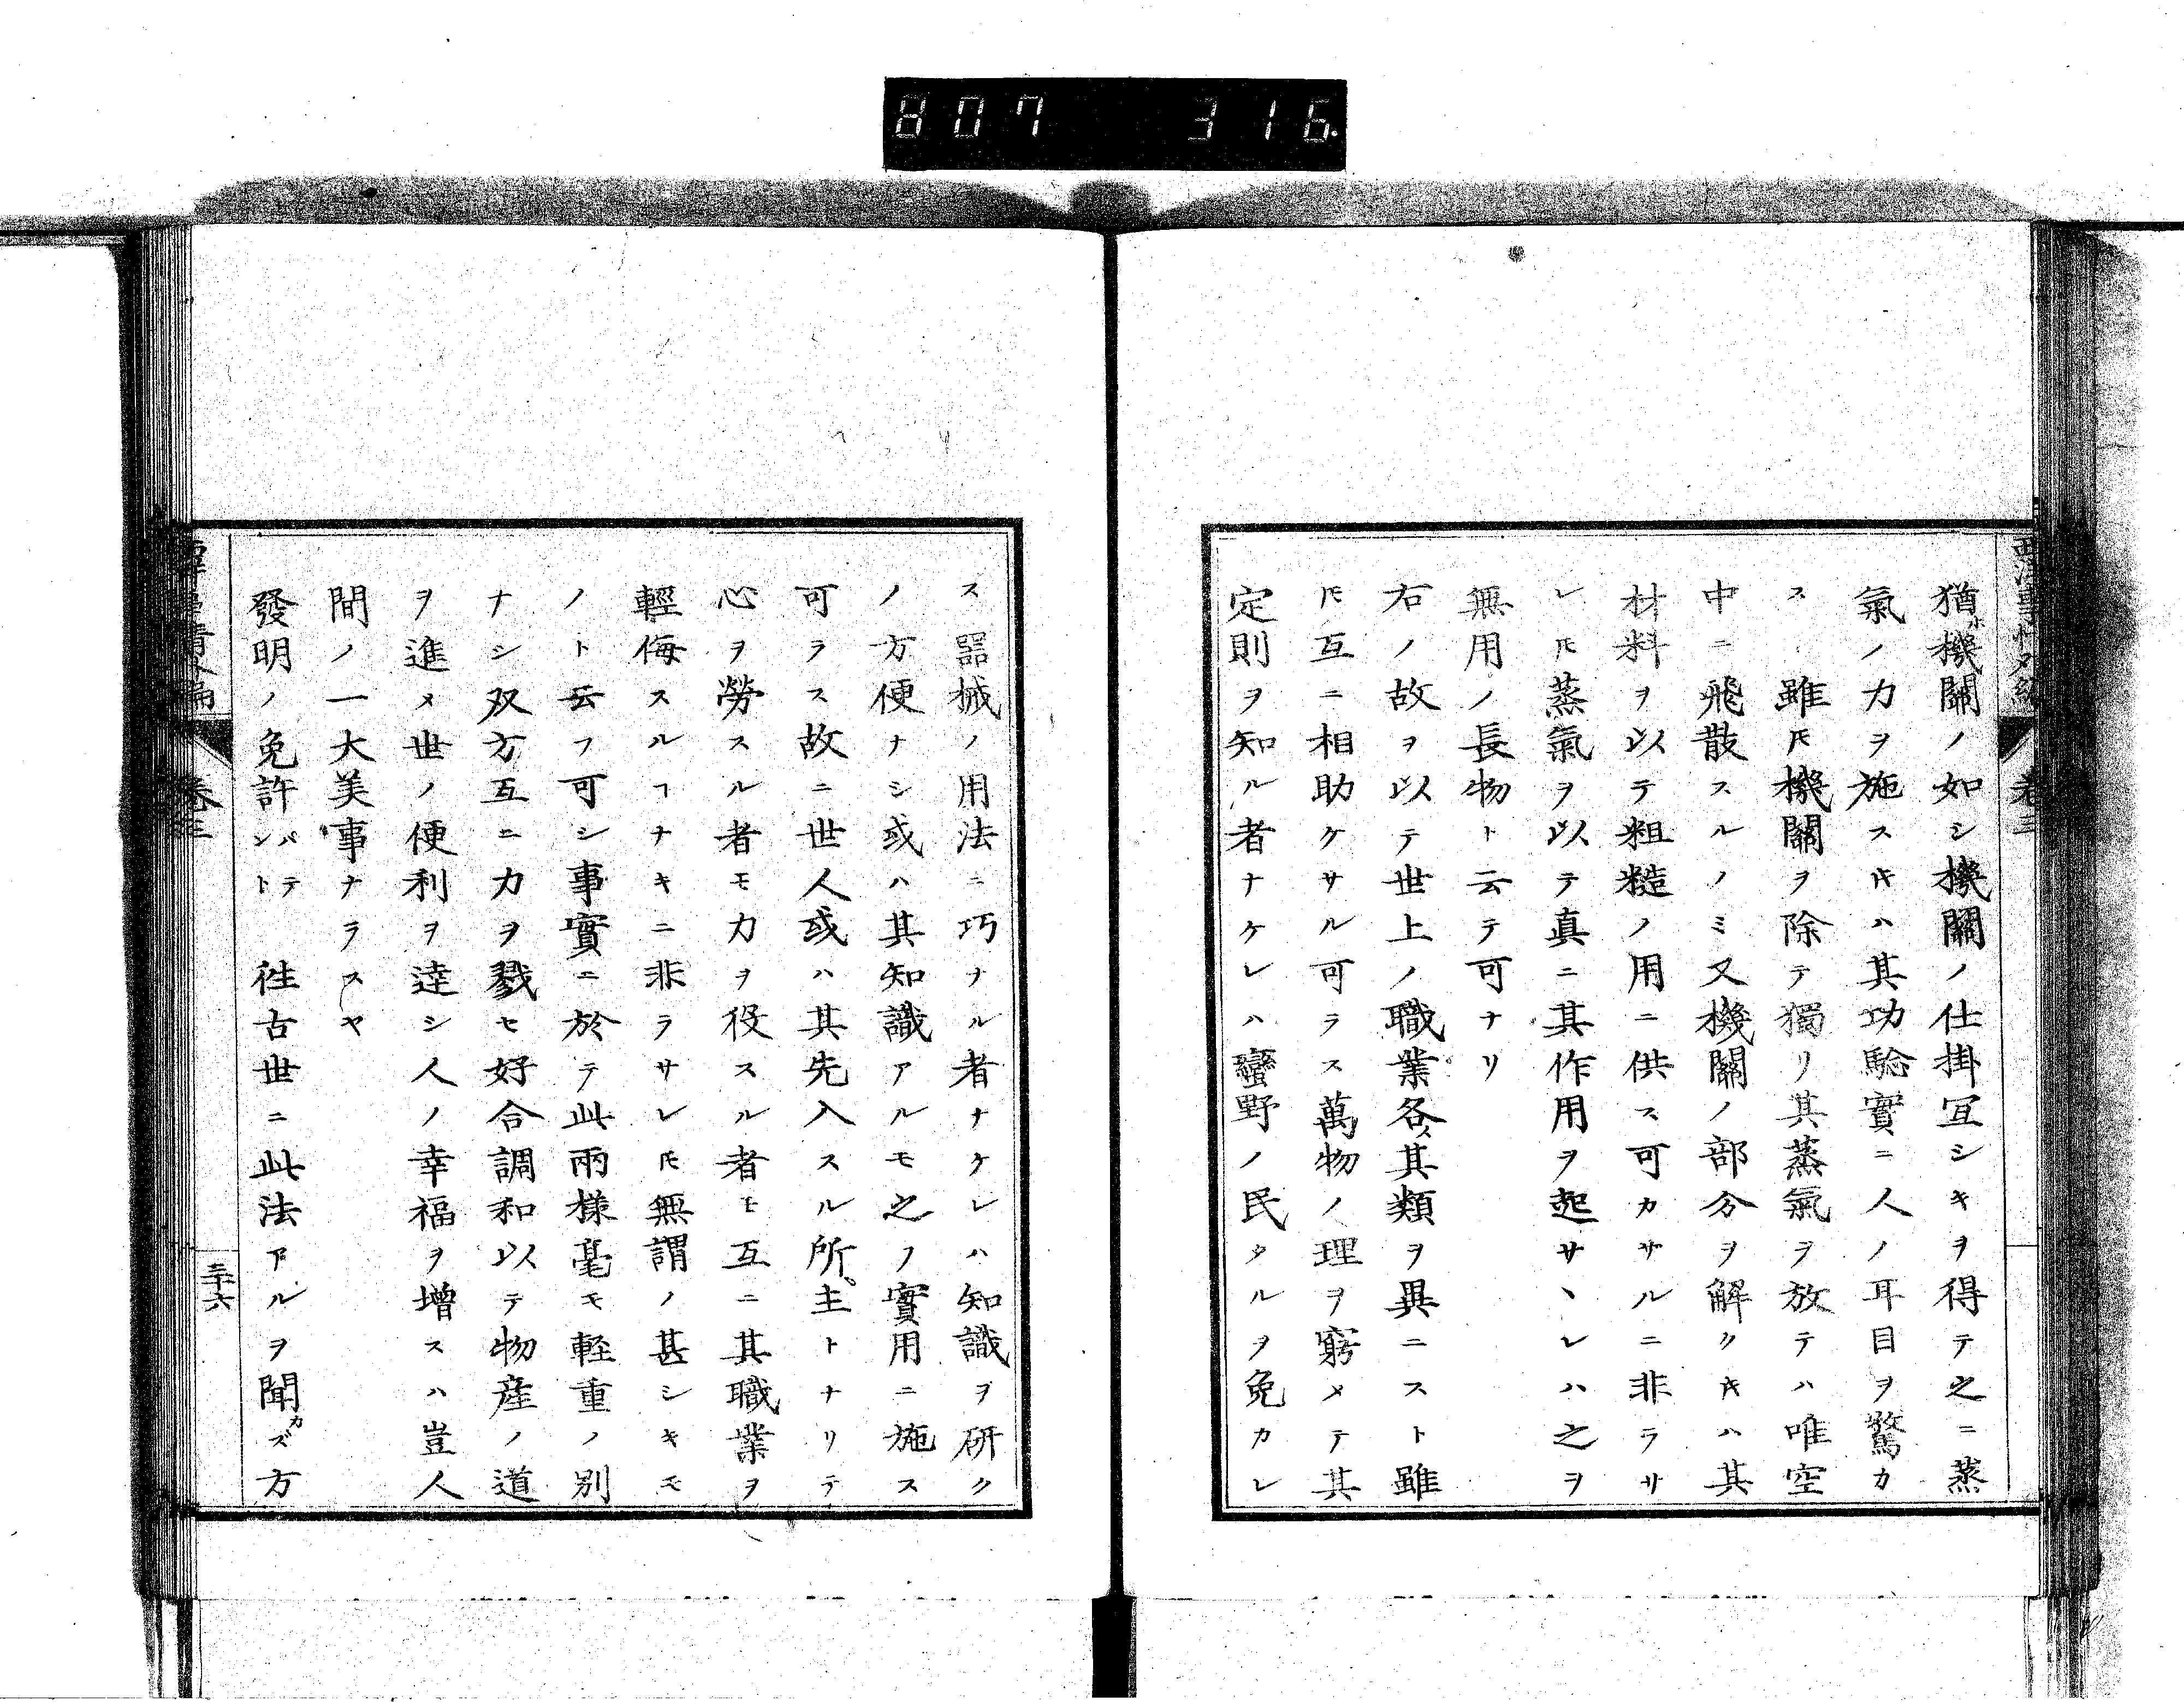 807 316.
西洋事情外編
卷三
猶ホ機關ノ如シ機關ノ仕掛宜シキヲ得テ之ニ蒸
氣ノ力ヲ施スキハ其功驗實ニ人ノ耳目ヲ驚カ
ス雖𪜈機關ヲ除テ獨リ其蒸氣ヲ放テハ唯空
中ニ飛散スルノミ又機關ノ部分ヲ解クキハ其
材料ヲ以テ粗糙ノ用ニ供ス可カサルニ非ラサ
レ𪜈蒸氣ヲ以テ真ニ其作用ヲ起サヽレハ之ヲ
無用ノ長物ト云テ可ナリ
右ノ故ヲ以テ世上ノ職業各〻其類ヲ異ニスト雖
𪜈互ニ相助ケサル可ラス萬物ノ理ヲ窮メテ其
定則ヲ知ル者ナケレハ蠻野ノ民タルヲ免カレ
ス器械ノ用法ニ巧ナル者ナケレハ知識ヲ研ク
ノ方便ナシ或ハ其知識アルモ之ノ實用ニ施ス
可ラス故ニ世人或ハ其先入スル所主トナリテ
心ヲ勞スル者モ力ヲ役スル者モ互ニ其職業ヲ
輕侮スルヿナキニ非ラサレ𪜈無謂ノ甚シキモ
ノト云フ可シ事實ニ於テ此兩様毫モ輕重ノ別
ナシ双方互ニ力ヲ戮セ好合調和以テ物產ノ道
ヲ進メ世ノ便利ヲ達シ人ノ幸福ヲ增スハ豈人
間ノ一大美事ナラスヤ
發明ノ免許パテント 徃古世ニ此法アルヲ聞カズ方
西洋事情外編
卷三
三十六